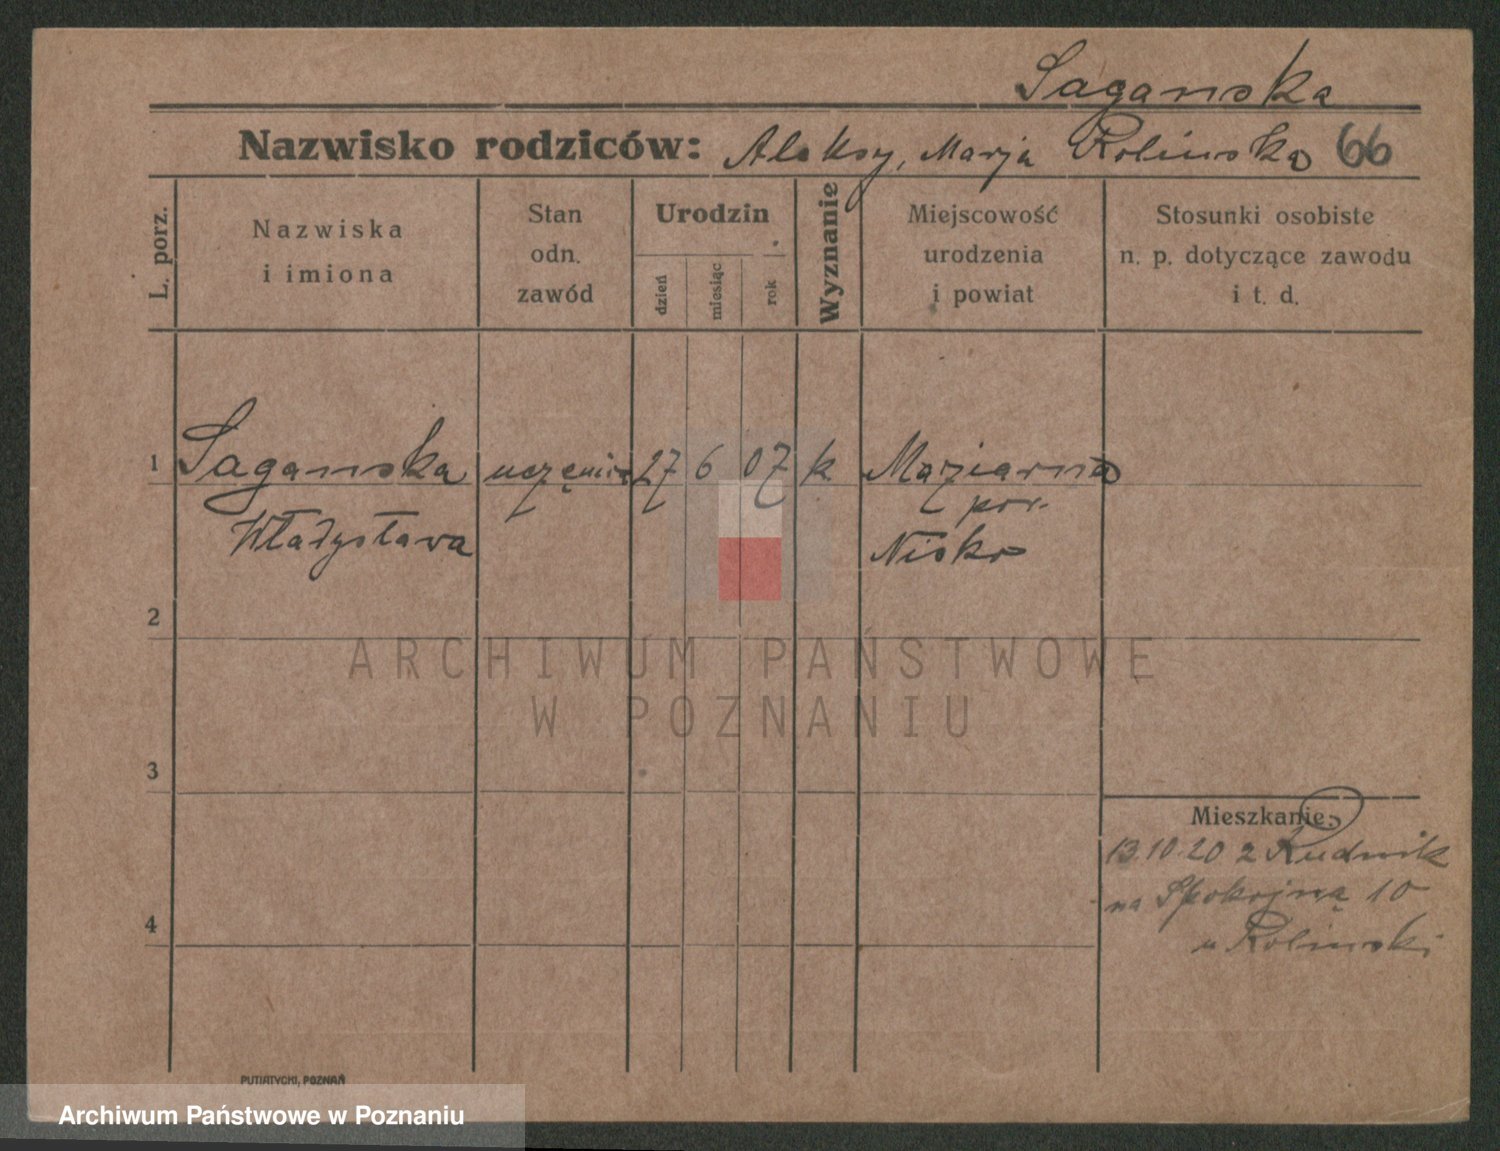 Saganska
Nazwisko rodziców: Aleksy, Marja Rolinska 66
L. porz.
Nazwiska
i imiona
Stan
odn.
zawód
Urodzin
dzień
miesiąc
rok
Wyznanie
Miejscowość
urodzenia
i powiat
Stosunki osobiste
n. p. dotyczące zawodu
i t. d.
1 Saganska uczenica 27 6 07 k Maziarnia
Władysława
pow.
Nisko
2
3
4
Mieszkanie:
13.10.20 z Rudnik
na Spokojną 10
u Rolinski
PUTIATYCKI, POZNAŃ
ARCHIWUM PAŃSTWOWE
W POZNANIU
Archiwum Państwowe w Poznaniu